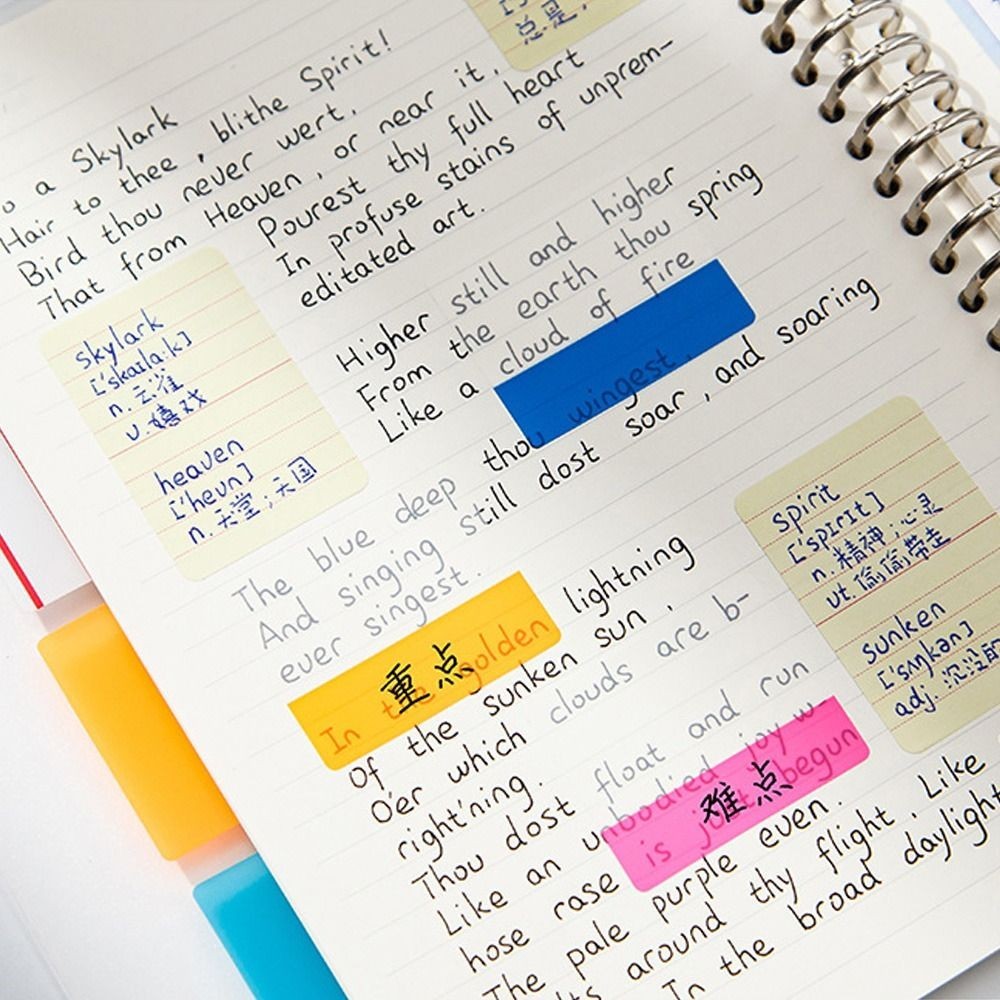 总是,
o a Skylark
Hair to thee , blithe Spirit!
Bird thou never wert.
That from Heaven, or near it,
Pourest thy full heart
In profuse stains of unprem-
editated art.
skylark
['skaɪlaːk]
n. 云雀
v. 嬉戏
heaven
['hevn]
n. 天堂;天国
Higher still and higher
From the earth thou spring
Like a cloud of fire
thou wingest.
The blue deep
And singing still dost soar, and soaring
ever singest.
spirit
['spɪrɪt]
n. 精神;心灵
vt. 偷偷带走
sunken
['sʌŋkən]
adj. 沉没的
In the golden lightning
重点
Of the sunken sun .
O'er which clouds are b-
right'ning.
Thou dost float and run
Like an unbodied joy w-
hose rase is just begun
难点
The pale purple even.
around thy flight. Like
In the broad daylight